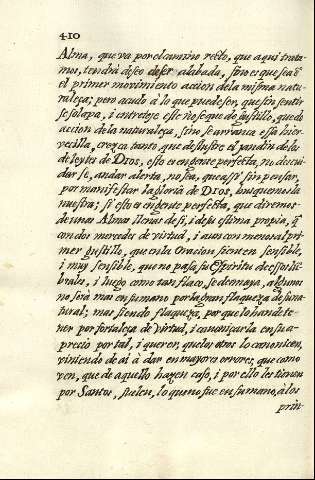 410
Alma, que va por el camino recto, que aqui trata-
mos, tendrà deseo de ser alabada, sino es que sea
el primer movimiento accion de la misma natu-
raleza; pero acudo à lo que puede ser, que sin sentir
se solapa, i entreteje este no se que de gustillo, que do
accion de la naturaleza, sino se arranca essa ier-
vecilla, crezca tanto que deslustre el jardin de los
deleytes de Dios, esto es en gente perfecta, no descui-
darse, andar alerta, no sea, que assi sin pensar,
por manifestar la gloria de Dios, busquemos la
nuestra; si esto es en gente perfecta, que diremos
de unas Almas llenas de si, i de su estima propia, q̃
con dos mercedes de virtud, i aun con menos al pri-
mer gustillo, que en la Oracion sienten sensible,
i mui sensible, que no pasa su Espiritu de essos um-
brales, i luego como tan flaco, se desmaya, algunos
no serà mas en su mano por la gran flaqueza de su na-
tural; mas siendo flaqueza, porque lo han de te-
ner por fortaleza de Virtud, i comunicarla en su a-
precio por tal, i querer, que los otros lo canonicen,
viniendo de ai à dar en mayores errores, que como
ven, que de aquello hazen caso, i por ello les tienen
por Santos, suelen, lo que no fue en su mano, à los
prin-